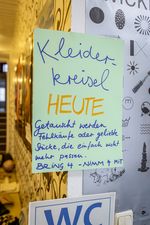 Kleider-
kreisel
HEUTE
Getauscht werden
Fehlkäufe oder geliebte
Stücke, die einfach nicht
mehr passen.
BRING 4 - NIMM 4 MIT
WC